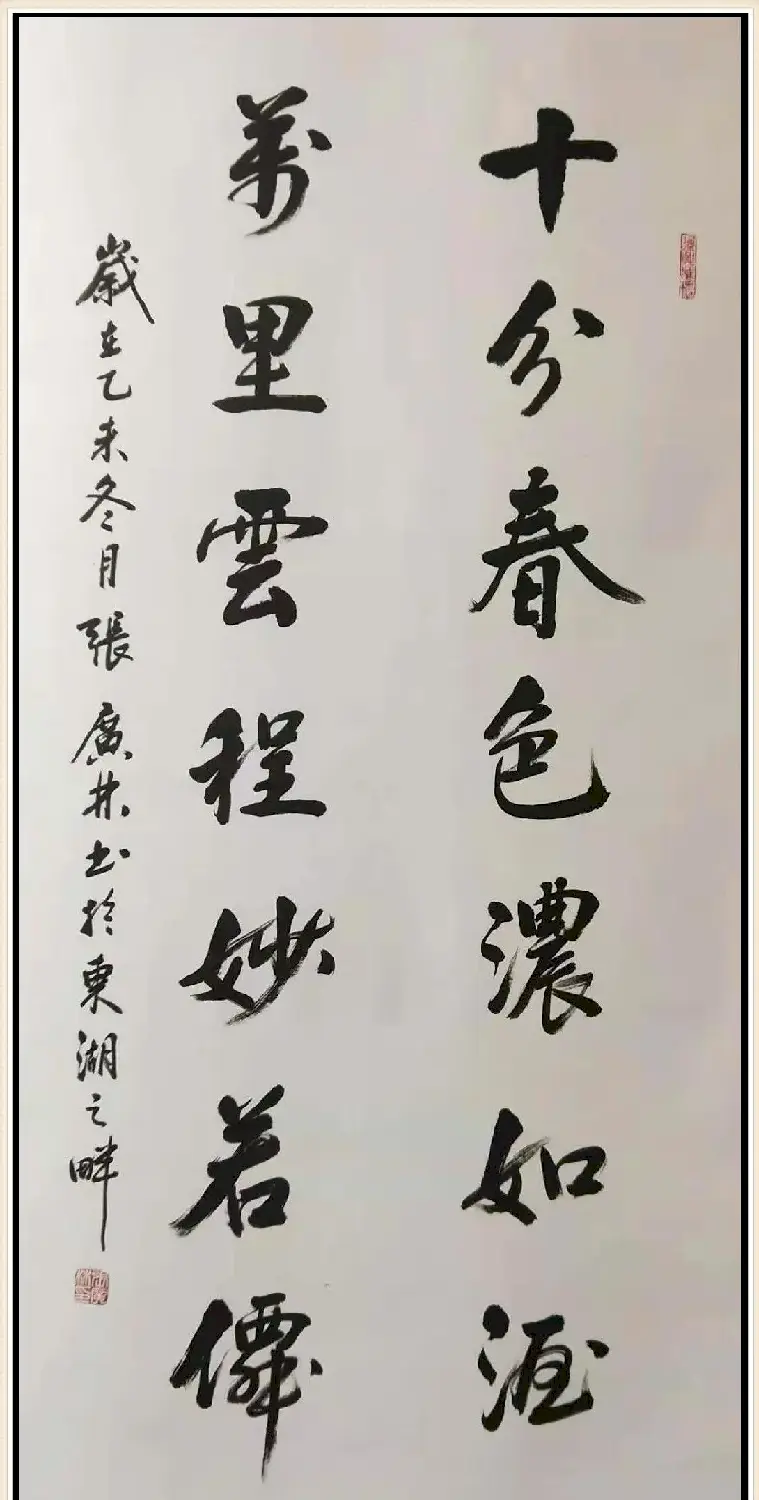 十分春色濃如酒
萬里雲程妙若僊
歲在乙未冬月張廣林書於東湖之畔